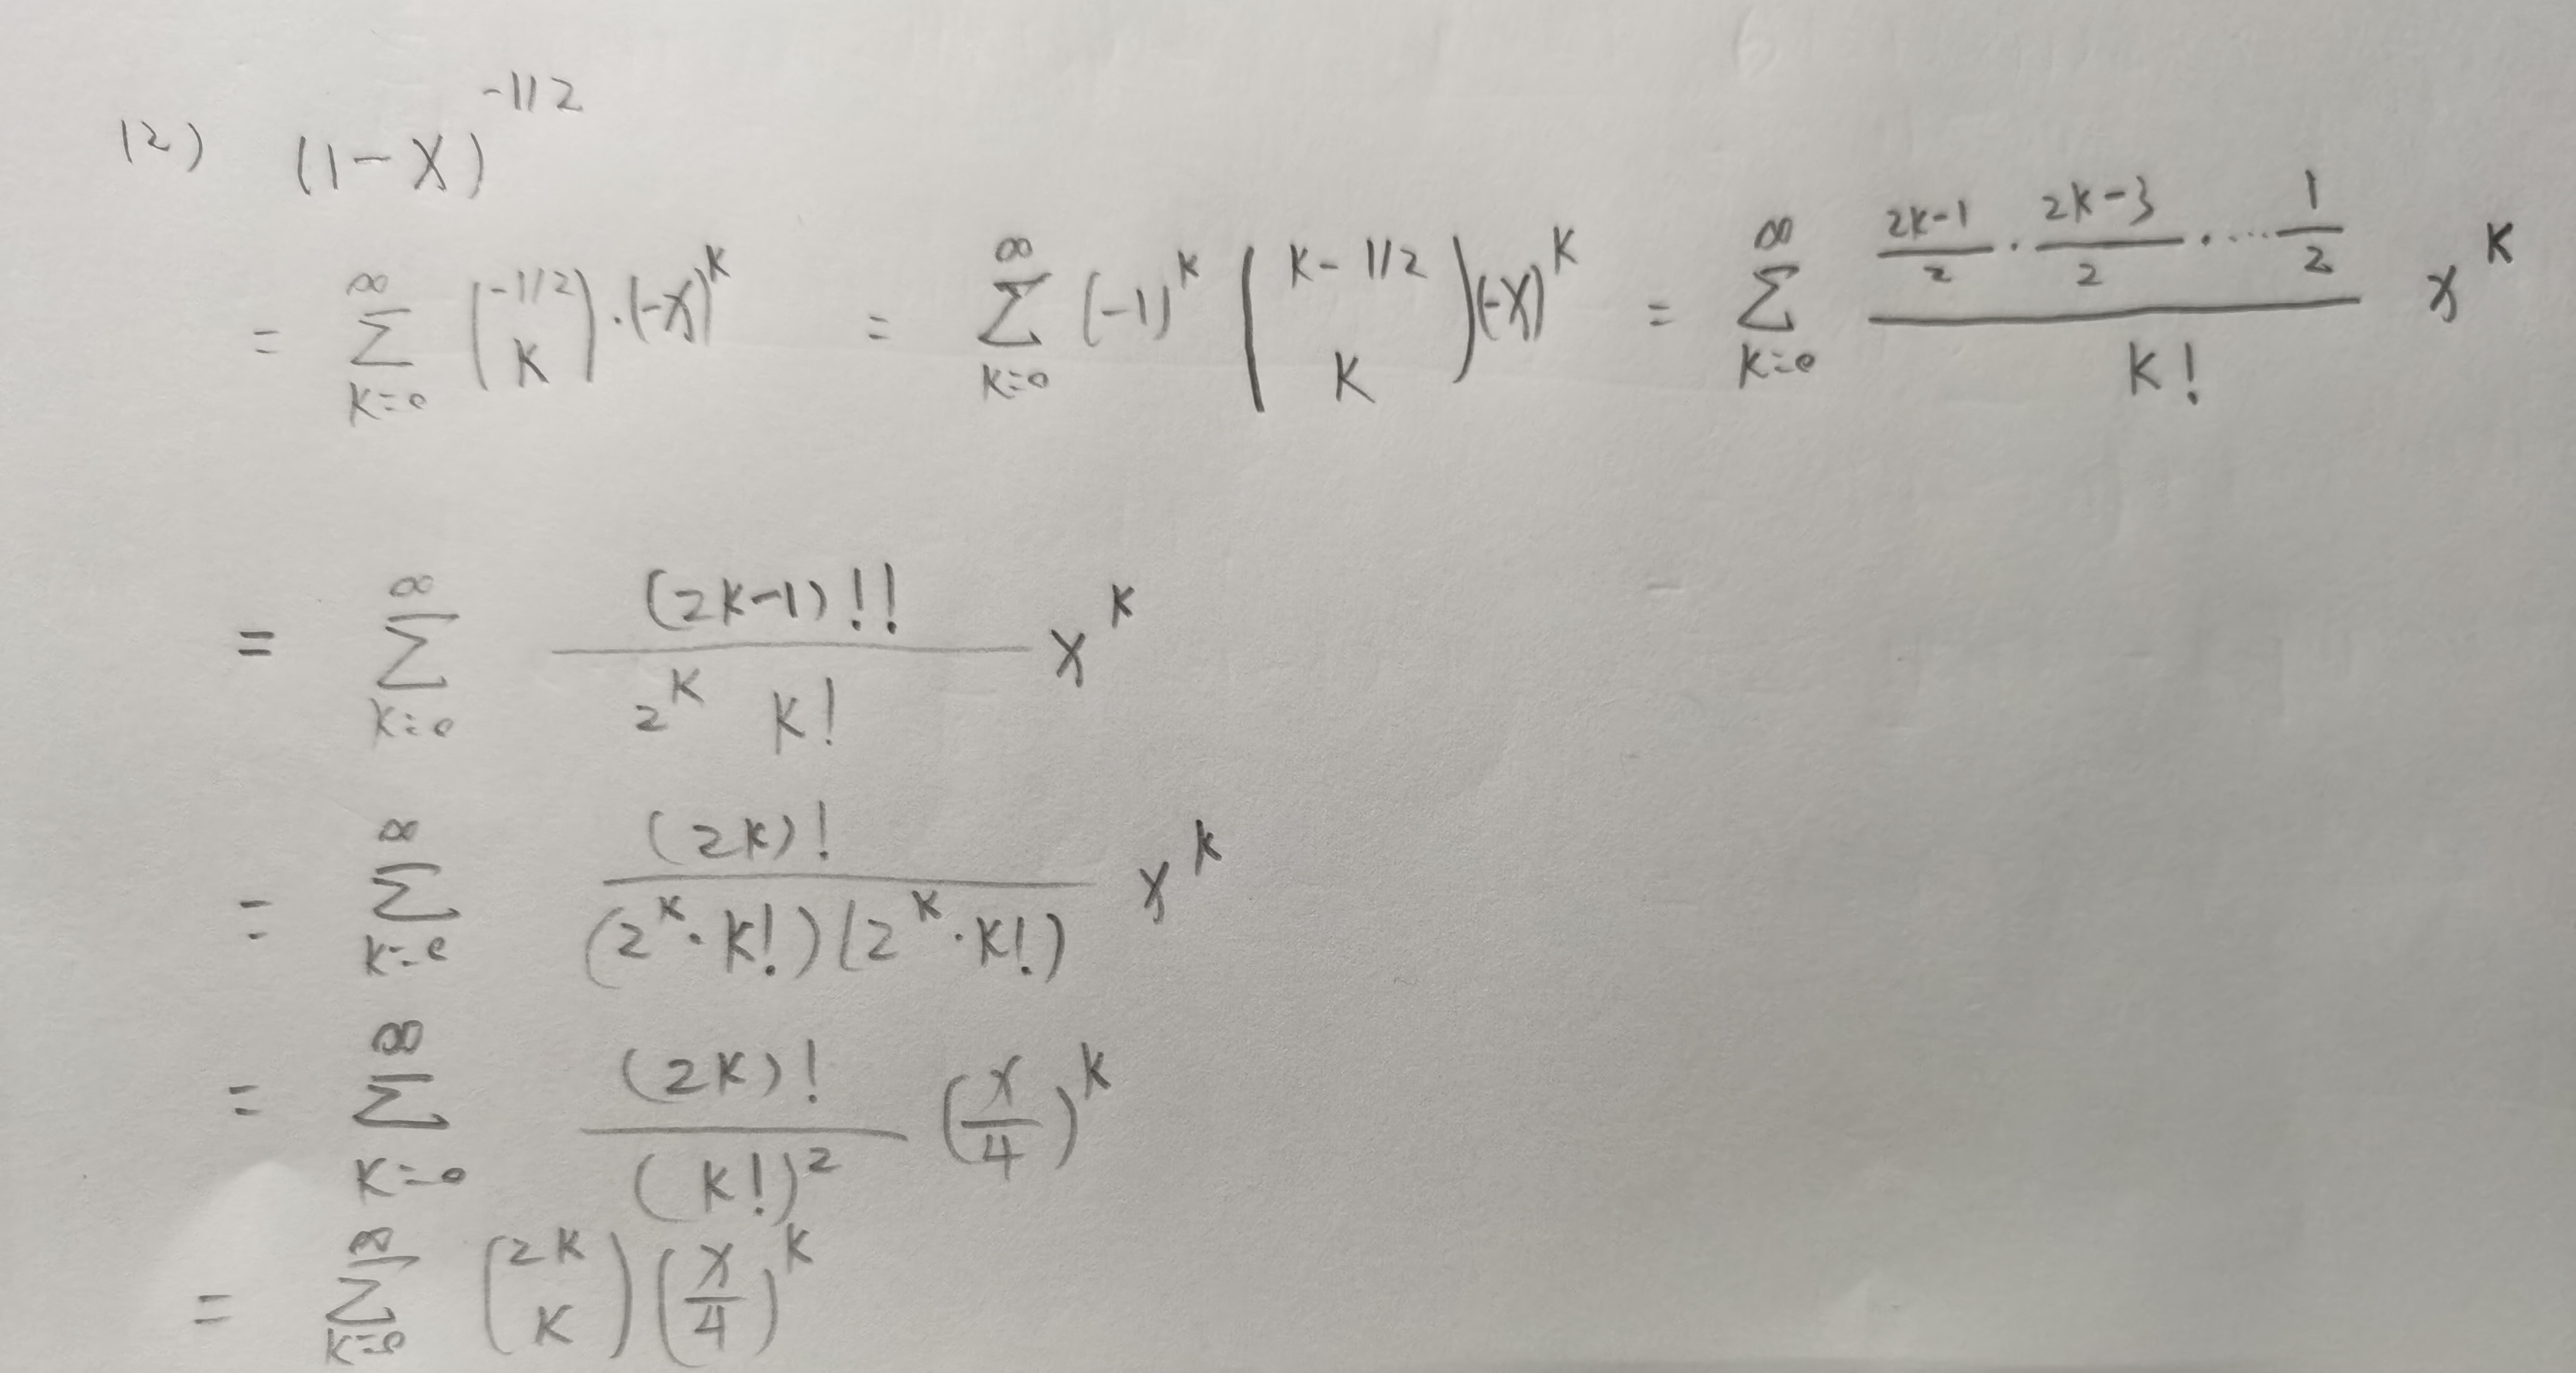 (2) (1-x)^{-1/2}
= \sum_{k=0}^{\infty} \binom{-1/2}{k} \cdot (-x)^k = \sum_{k=0}^{\infty} (-1)^k \binom{k-1/2}{k} (-x)^k = \sum_{k=0}^{\infty} \frac{\frac{2k-1}{2} \cdot \frac{2k-3}{2} \cdot \cdots \frac{1}{2}}{k!} x^k
= \sum_{k=0}^{\infty} \frac{(2k-1)!!}{2^k k!} x^k
= \sum_{k=0}^{\infty} \frac{(2k)!}{(2^k \cdot k!)(2^k \cdot k!)} x^k
= \sum_{k=0}^{\infty} \frac{(2k)!}{(k!)^2} \left(\frac{x}{4}\right)^k
= \sum_{k=0}^{\infty} \binom{2k}{k} \left(\frac{x}{4}\right)^k